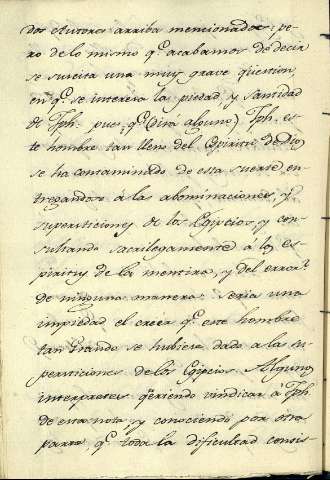 dos Autores arriba mencionados; pe-
ro de lo mismo q.e acabamos de decir
se suscita una muy grave question
en q.e se interesa la piedad, y santidad
de Jph. pues q.e (dirá alguno) Jph. es-
te hombre tan lleno del Espiritu de Dios
se ha contaminado de esta suerte, en-
tregandose á las abominaciones, y
supersticiones de los Egipcios, y con-
sultando sacrilegamente á los es-
piritus de la mentira, y del error?
de ninguna manera: seria una
impiedad el creer q.e este hombre
tan Grande se hubiese dado a las su-
persticiones de los Egipcios. Algunos
interpretes queriendo vindicar a Jph.
de esta nota, y conociendo por otra
parte q.e toda la dificultad consis-